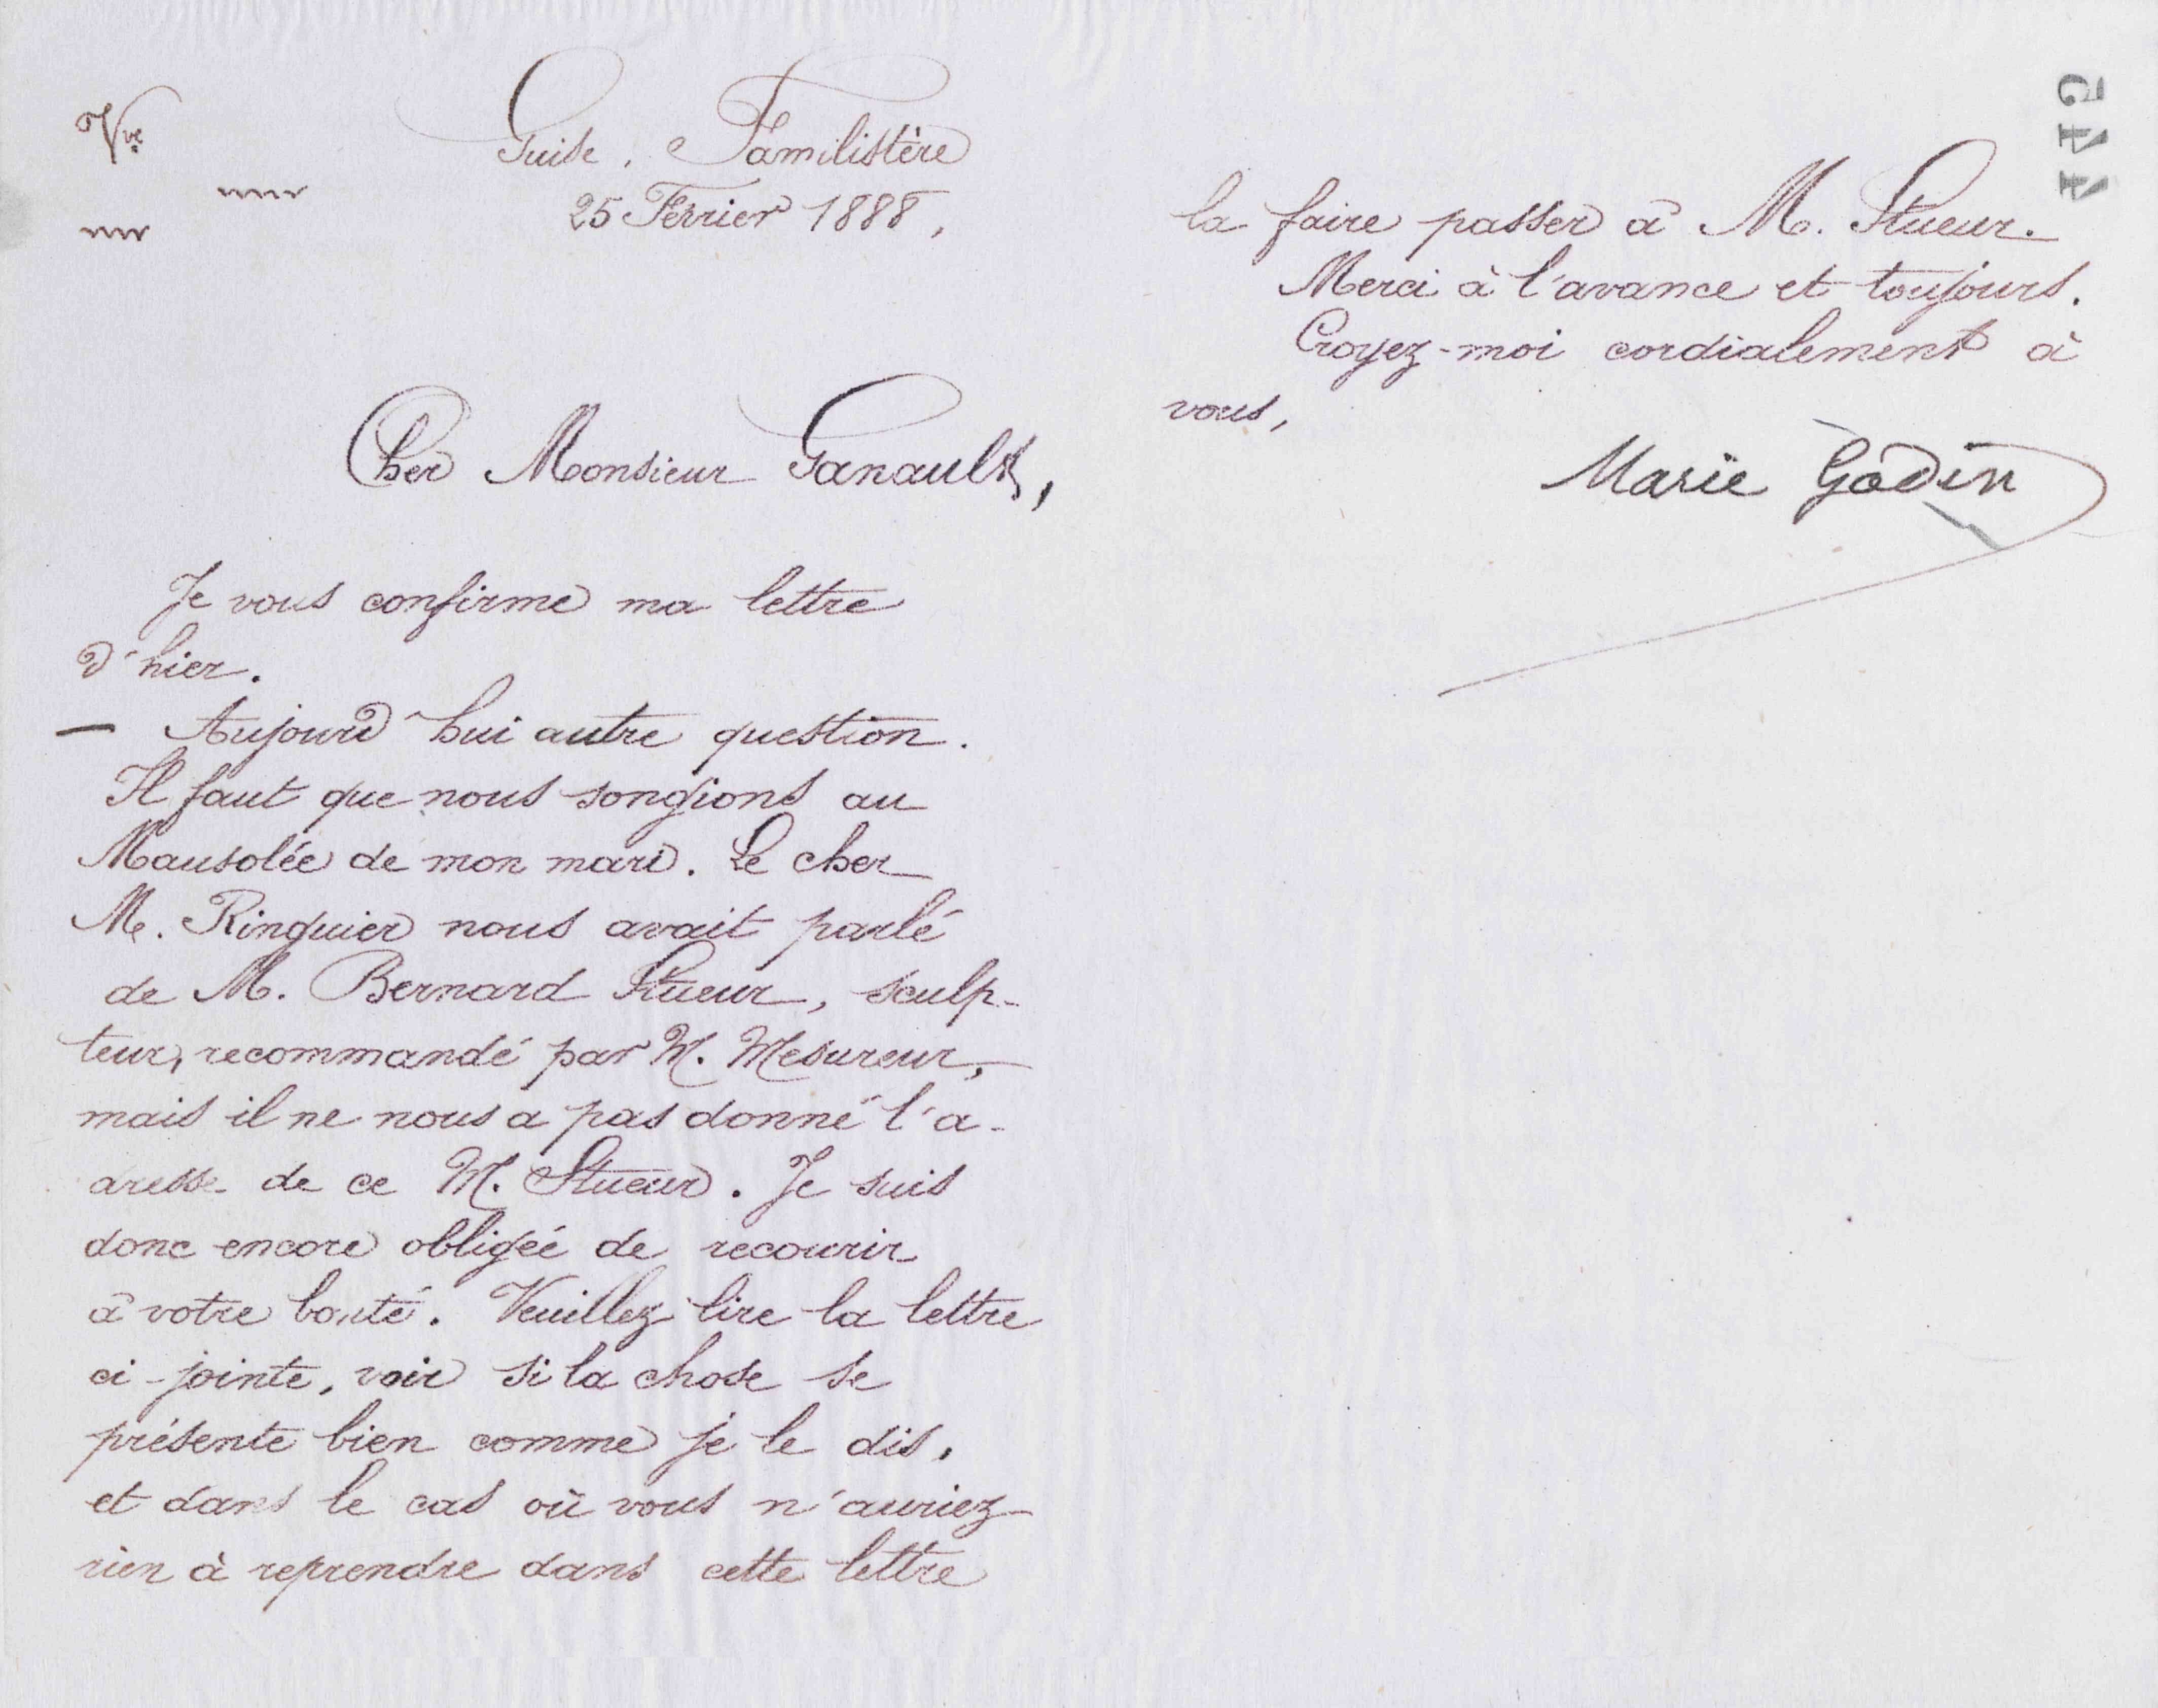 Vve
Guise. Familistère
25 Février 1888,
Cher Monsieur Ganault,
Je vous confirme ma lettre
d'hier.
— Aujourd'hui autre question.
Il faut que nous songions au
Mausolée de mon mari. Le cher
M. Ringuier nous avait parlé
de M. Bernard Stueur, sculp-
teur, recommandé par M. Mesureur,
mais il ne nous a pas donné l'a-
dresse de ce M. Stueur. Je suis
donc encore obligée de recourir
à votre bonté. Veuillez lire la lettre
ci-jointe, voir si la chose se
présente bien comme je le dis,
et dans le cas où vous n'auriez
rien à reprendre dans cette lettre
la faire passer à M. Stueur.
Merci à l'avance et toujours.
Croyez-moi cordialement à
vous,
Marie Godin